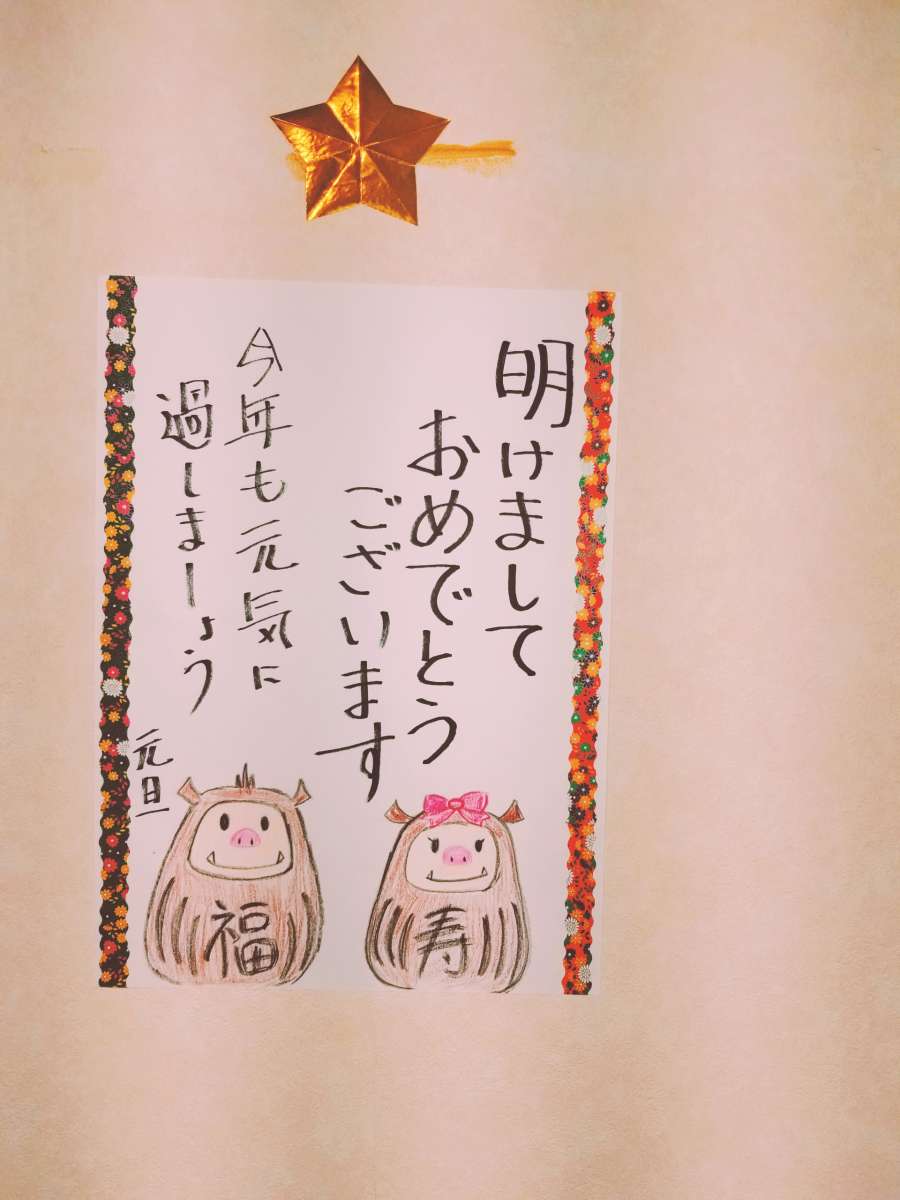 明けまして
おめでとう
ございます
今年も元気に
過しましょう
元旦
福
寿